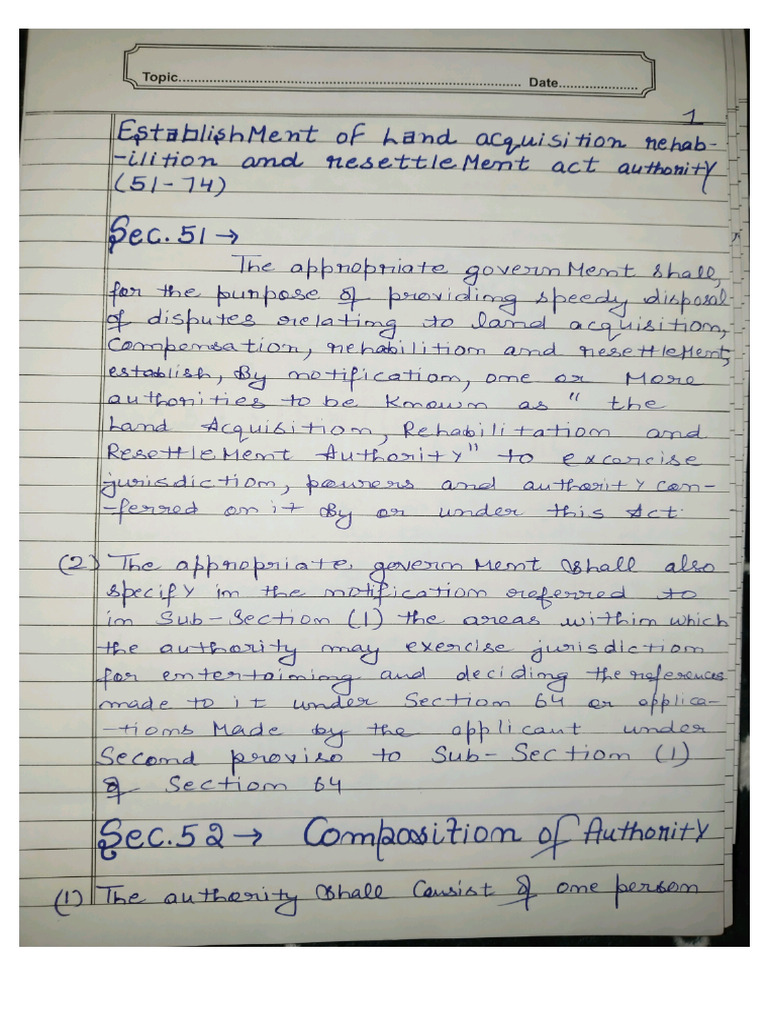 Topic.................... Date....................
1
Establishment of Land acquisition rehab-
-ilition and resettlement act authority
(51-74)
Sec. 51 →
The appropriate government shall,
for the purpose of providing speedy disposal
of disputes relating to land acquisition,
Compensation, rehabilition and resettlement,
establish, By notification, one or more
authorities to be known as " the
Land Acquisition, Rehabilitation and
Resettlement Authority" to excorcise
jurisdiction, powers and authority con-
-ferred on it By or under this Act.
(2) The appropriate government shall also
specify in the notification referred to
in Sub-Section (1) the areas within which
the authority may exercise jurisdiction
for entertaining and deciding the references
made to it under Section 64 or applica-
-tions Made by the applicant under
Second proviso to Sub-Section (1)
of Section 64
Sec. 52 → Composition of Authority
(1) The authority shall Consist of one person